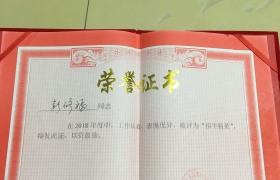 荣誉证书
同志
在2018年度中，工作认真、表现优异，被评为“招生标兵”，
特发此证，以资鼓励。